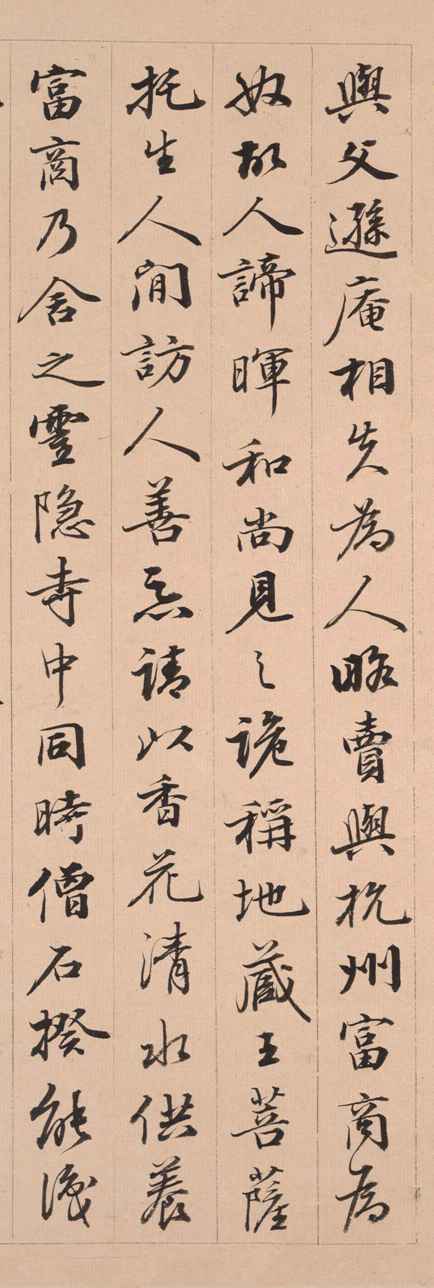 與父遜庵相失為人略賣與杭州富商為
奴故人諦暉和尚見之詭稱地藏王菩薩
托生人間訪人善惡請以香花清水供養
富商乃舍之靈隱寺中同時僧石揆能識